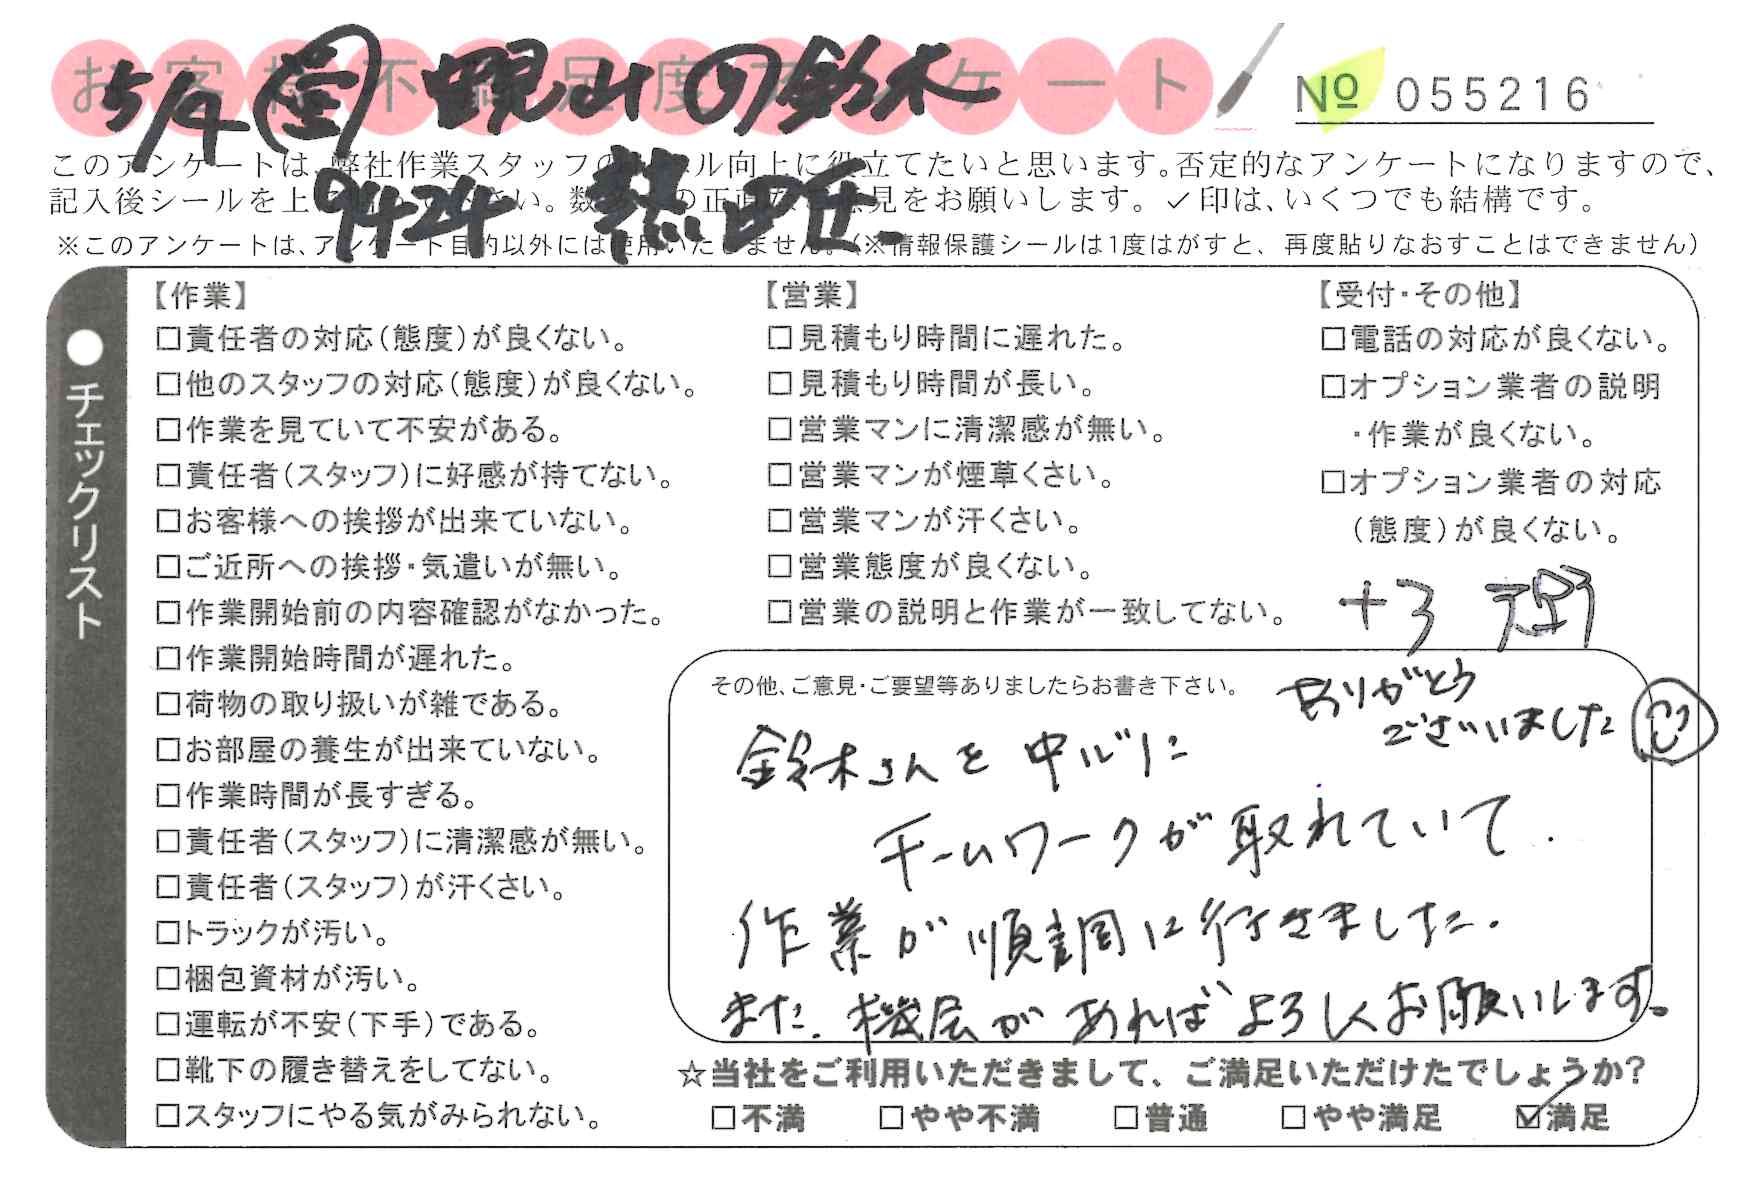 お客様不満足度アンケート
№ 055216
5/4(金) 鈴木
9424
このアンケートは、弊社作業スタッフのレベル向上に役立てたいと思います。否定的なアンケートになりますので、
記入後シールを上に貼って下さい。数多くの正直なご意見をお願いします。✓印は、いくつでも結構です。
※このアンケートは、アンケート目的以外には使用いたしません。(※情報保護シールは1度はがすと、再度貼りなおすことはできません)
●チェックリスト
【作業】
□責任者の対応(態度)が良くない。
□他のスタッフの対応(態度)が良くない。
□作業を見ていて不安がある。
□責任者(スタッフ)に好感が持てない。
□お客様への挨拶が出来ていない。
□ご近所への挨拶・気遣いが無い。
□作業開始前の内容確認がなかった。
□作業開始時間が遅れた。
□荷物の取り扱いが雑である。
□お部屋の養生が出来ていない。
□作業時間が長すぎる。
□責任者(スタッフ)に清潔感が無い。
□責任者(スタッフ)が汗くさい。
□トラックが汚い。
□梱包資材が汚い。
□運転が不安(下手)である。
□靴下の履き替えをしてない。
□スタッフにやる気がみられない。
【営業】
□見積もり時間に遅れた。
□見積もり時間が長い。
□営業マンに清潔感が無い。
□営業マンが煙草くさい。
□営業マンが汗くさい。
□営業態度が良くない。
□営業の説明と作業が一致してない。
【受付・その他】
□電話の対応が良くない。
□オプション業者の説明
・作業が良くない。
□オプション業者の対応
(態度)が良くない。
+3
その他、ご意見・ご要望等ありましたらお書き下さい。
ありがとう
ございました
鈴木さんを中心に
チームワークが取れていて、
作業が順調に行きました。
また、機会があればよろしくお願いします。
☆当社をご利用いただきまして、ご満足いただけたでしょうか?
□不満 □やや不満 □普通 □やや満足 ☑満足